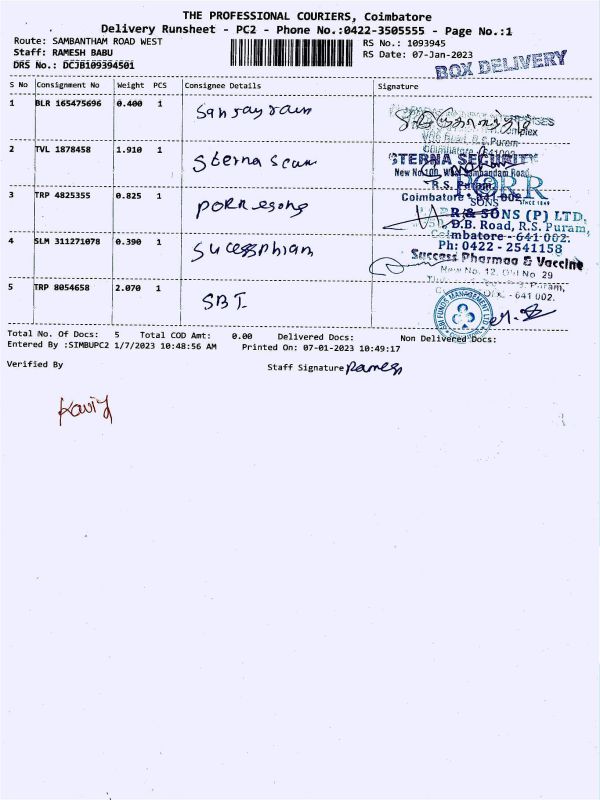 THE PROFESSIONAL COURIERS, Coimbatore
Delivery Runsheet - PC2 - Phone No.:0422-3505555 - Page No.:1
Route: SAMBANTHAM ROAD WEST
RS No.: 1093945
Staff: RAMESH BABU
RS Date: 07-Jan-2023
DRS No.: DCJB109394501
BOX DELIVERY
S No Consignment No Weight PCS Consignee Details Signature
1 BLR 165475696 0.400 1
R.S.Puram
2 TVL 1878458 1.910 1 Sterna Secur
STERNA SECURITY
R.S. Puram
Coimbatore - 641 002
3 TRP 4825355 0.825 1
PORR
SONS
SINCE 1949
R & SONS (P) LTD,
D.B. Road, R.S. Puram,
mbatore - 641 002.
Ph: 0422 - 2541158
4 SLM 311271078 0.390 1
Success Pharmaa & Vaccine
New No. 12, Old No 29
641 002.
5 TRP 8054658 2.070 1 SBI
SBI FUNDS MANAGEMENT LTD
Total No. Of Docs: 5 Total COD Amt: 0.00 Delivered Docs: Non Delivered Docs:
Entered By :SIMBUPC2 1/7/2023 10:48:56 AM Printed On: 07-01-2023 10:49:17
Verified By
Staff Signature Ramesh